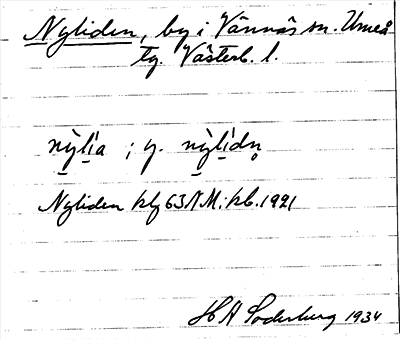 Nyliden, by i Vännäs sn. Umeå
tg. Västerb. l.
nỳlía ; y. nỳlídn̥
Nyliden kly 63 A M: kb. 1921
H A Söderberg 1934